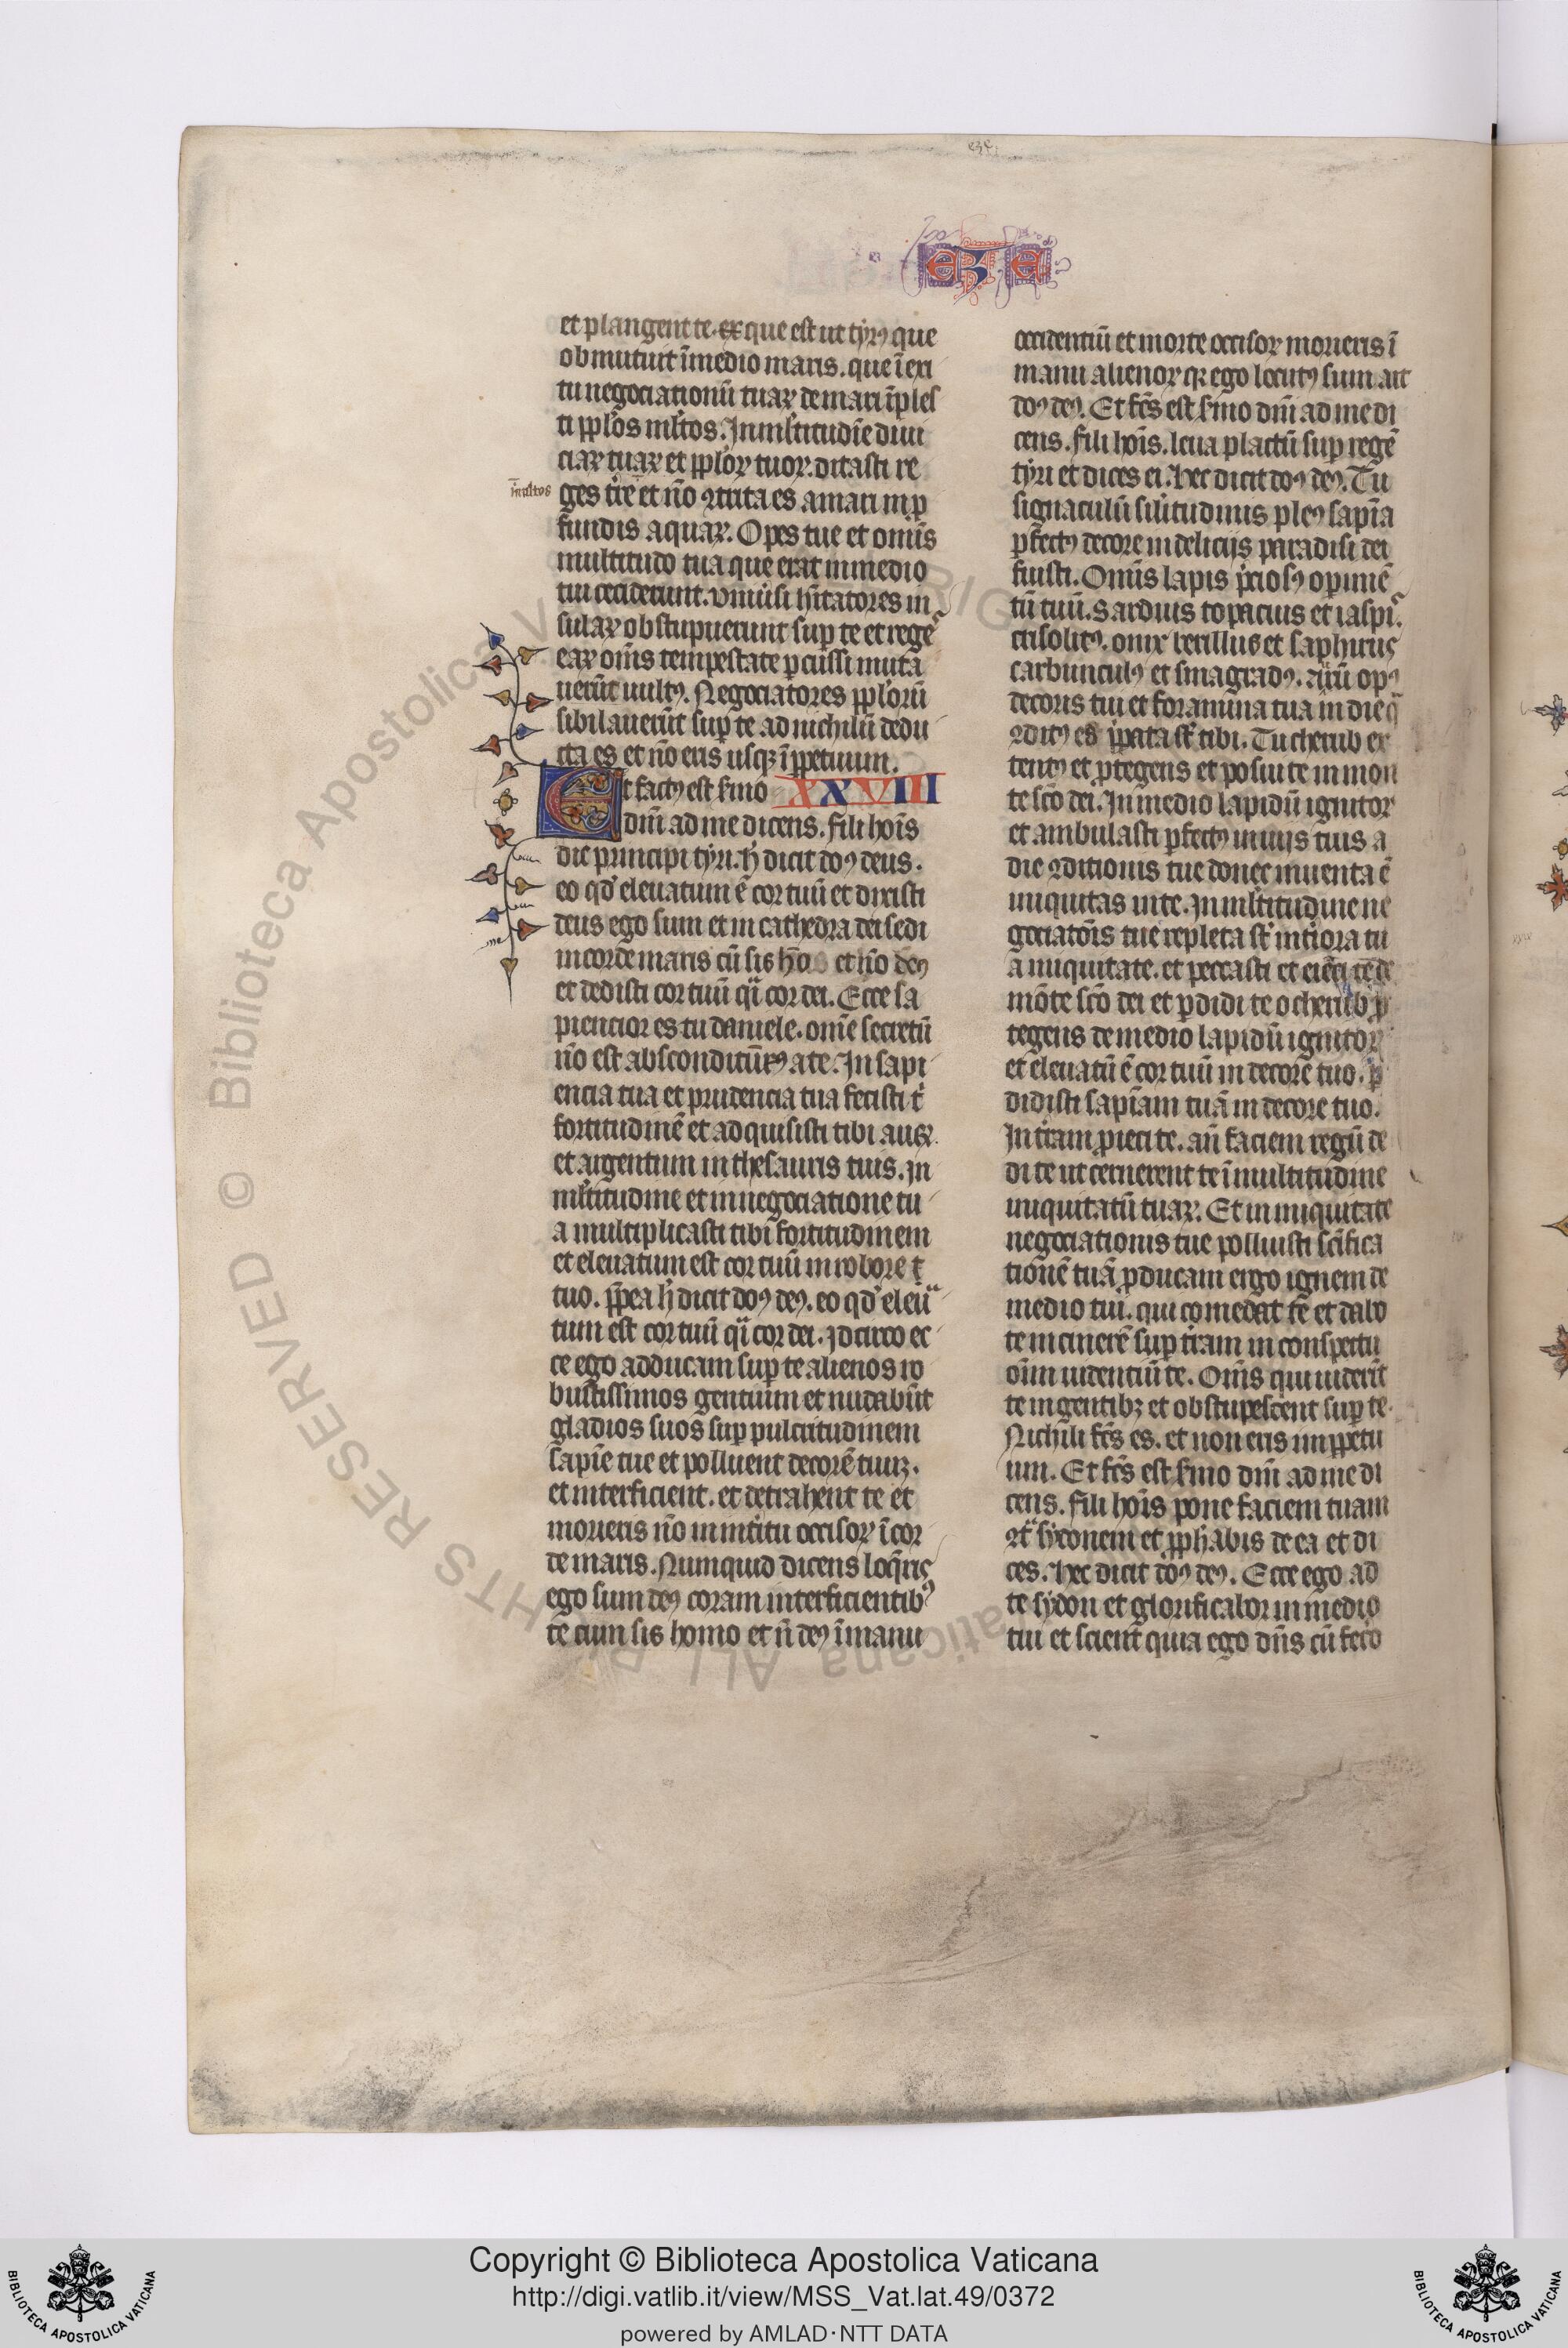 EZE
et plangent te. ex que est ut tyrꝰ que
obmutuit ī medio maris. que ī exi
tu negociationū tuaꝝ de mari īples
ti ppl̓os ml̓tos. In ml̓titudīe diui
ciaꝝ tuaꝝ et ppl̓oꝝ tuoꝝ. ditasti re
multos
ges t̓re et nō ꝯtrita es a mari in ꝓ
fundis aquaꝝ. Opes tue et omīs
multitudo tua que erat in medio
tui ceciderunt. vniūsi hītatores in
sulaꝝ obstupuerunt suꝑ te et regeˢ
eaꝝ oīns tempestate ꝑcussi muta
uerūt uultꝰ. Negociatores ppl̓orū
sibilauerūt suꝑ te ad nichilū dedu
cta es et nō eris usqꝫ ī ꝑpetuum.
Et factꝰ est s̄mo XXVIII
dnī ad me dicens. fili hoīs
dic principi tyri. h̓ dicit dnꝰ deus.
eo qd̓ eleuatum ē cor tuū et dixisti
deus ego sum et in cathedra dei sedi
in corde maris cū sis hō et nō deꝰ
et dedisti cor tuū qͣi cor dei. Ecce sa
piencior es tu daniele. omē secretū
nō est absconditum a te. In sapi
encia tua et prudencia tua fecisti t̓
fortitudinē et adquisisti tibi auꝝ
et argentum in thesauris tuis. In
ml̓titudine et in negociatione tu
a multiplicasti tibi fortitudinem
et eleuatum est cor tuū in robore t̓
tuo. ꝓpea h̓ dicit dnꝰ deꝰ. eo qd̓ eleuͣ
tum est cor tuū qͣi cor dei. Idcirco ec
ce ego adducam suꝑ te alienos ro
bustissimos gentium et nudabūt
gladios suos suꝑ pulcritudinem
sapīe tue et polluent decorē tuuꝫ.
et interficient. et detrahent te et
morieris nō in intitu occisoꝝ ī cor
de maris. Numquid dicens loq̄ris
ego sum deꝰ coram interficientibꝰ
te cum sis homo et n̄ deꝰ ī manu
occidentiū et morte occisoꝝ morieris ī
manu alienoꝝ qꝛ ego locutꝰ sum ait
dnꝰ deꝰ. Et fc̄s est s̄mo dnī ad me di
cens. fili hoīs. leua plāctū suꝑ regē
tyri et dices ei. hec dicit dnꝰ deꝰ. Tu
signaculū silitudinis plenꝰ sapīa
ꝑfectꝰ decore in delicijs paradisi dei
fuisti. Omīs lapis p̄ciosꝰ operimē
tū tuū. Sardius topacius et iaspiˢ.
crisolitꝰ. onix berillus et saphirus
carbunculꝰ et smagradꝰ. aurū opꝰ
decoris tui et foramina tua in die qͣ
ꝯditꝰ es p̄pata st̄ tibi. Tu cherub ex
tentꝰ et ꝓtegens et posui te in mon
te scō dei. In medio lapidū ignitoꝝ
et ambulasti ꝑfectꝰ in uijs tuis a
die ꝯditionis tue donec inuenta ē
iniquitas in te. In ml̓titudine ne
gociatōis tue repleta st̄ intiora tu
a iniquitate. et peccasti et eieci te de
mōte scō dei et ꝑdidi te o cherub ꝓ
tegens de medio lapidū ignitoꝝ
et eleuatū ē cor tuū in decore tuo. ꝑ
didisti sapīam tuā in decore tuo.
In t̓ram ꝓieci te. an̄ faciem regū de
di te ut cernerent te ī multitudine
iniquitatū tuaꝝ. Et in iniquitate
negociationis tue polluisti sc̄ifica
tionē tuā ꝓducam ergo ignem de
medio tui. qui comedat te et dabo
te in cinerē suꝑ t̓ram in conspectu
oīm uidentiū te. Omīs qui uiderīt
te in gentibꝫ et obstupescent suꝑ te.
Nichili fc̄s es. et non eris in ꝑpetu
um. Et fc̄s est s̄mo dnī ad me di
cens. fili hoīs pone faciem tuam
ꝯtͣ sydonem et ꝓphabis de ea et di
ces. hec dicit dnꝰ deꝰ. Ecce ego ad
te sydon et glorificabor in medio
tui et scient quia ego dn̄s cū feco
Copyright © Biblioteca Apostolica Vaticana
http://digi.vatlib.it/view/MSS_Vat.lat.49/0372
powered by AMLAD·NTT DATA
BIBLIOTECA APOSTOLICA VATICANA
BIBLIOTECA APOSTOLICA VATICANA